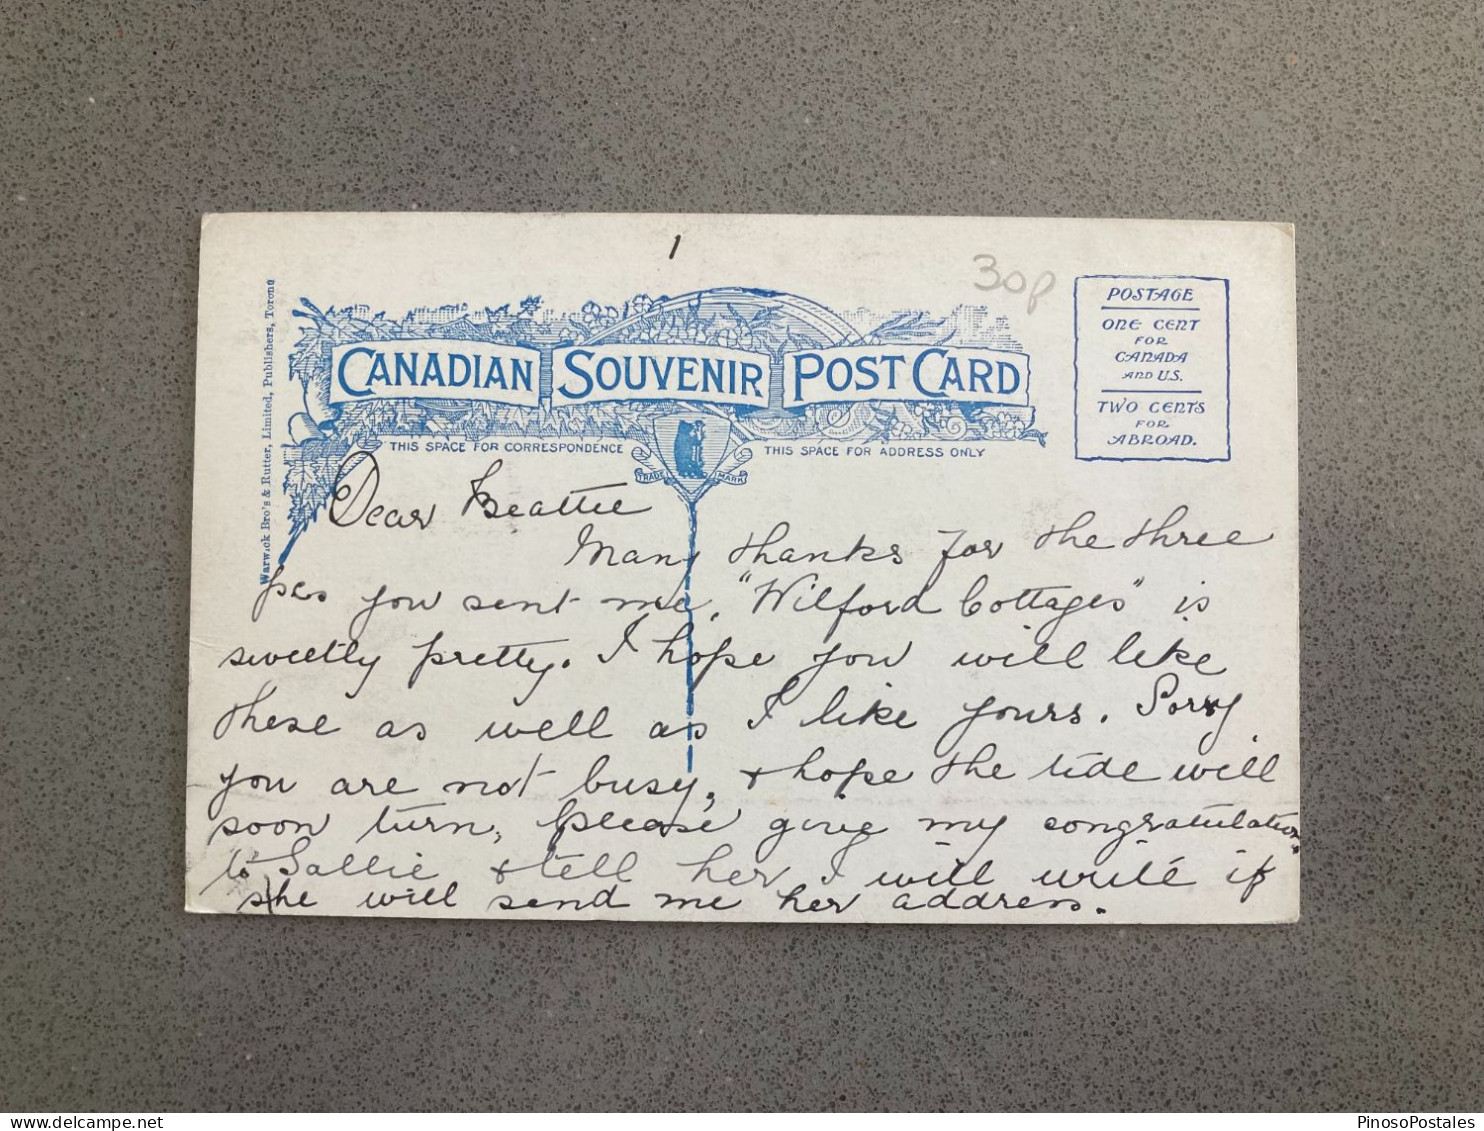 1
30p
Warwick Bro's & Rutter, Limited, Publishers, Toronto
CANADIAN SOUVENIR POST CARD
THIS SPACE FOR CORRESPONDENCE
TRADE MARK
THIS SPACE FOR ADDRESS ONLY
POSTAGE
ONE CENT
FOR
CANADA
AND U.S.
TWO CENTS
FOR
ABROAD.
Dear Beattie
Many thanks for the three
pcs you sent me, "Wilford Cottages" is
sweetly pretty. I hope you will like
these as well as I like yours. Sorry
you are not busy, & hope the tide will
soon turn, please give my congratulations
to Sallie & tell her I will write if
she will send me her address.
PinosoPostales